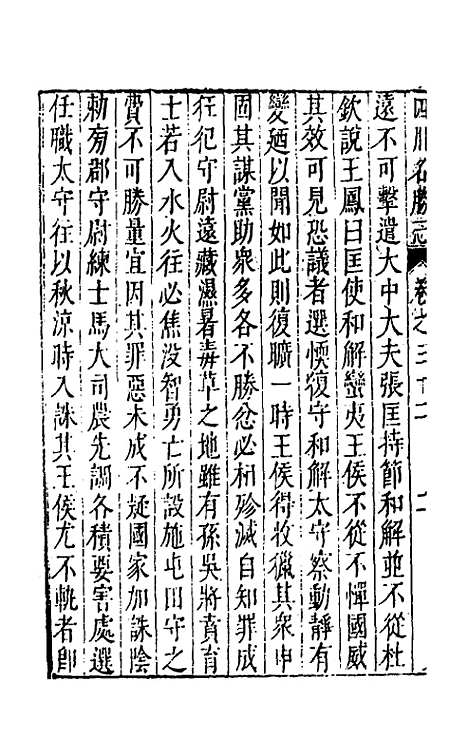 四川名勝志 卷之三十二
遠不可擊遣大中大夫張匡持節和解並不從杜
欽說王鳳曰匡使和解蠻夷王侯不從不憚國威
其效可見恐議者選愞復守和解太守察動靜有
變廼以聞如此則復曠一時王侯得收獵其衆申
固其謀黨助衆多各不勝忿必相殄滅自知罪成
狂犯守尉遠藏濕暑毒草之地雖有孫吳將賁育
士若入水火往必焦没智勇亡所設施屯田守之
費不可勝量宜因其罪惡未成不疑國家加誅陰
勑旁郡守尉練士馬大司農先調各積要害處選
任職太守往以秋涼時入誅其王侯尤不軌者卽